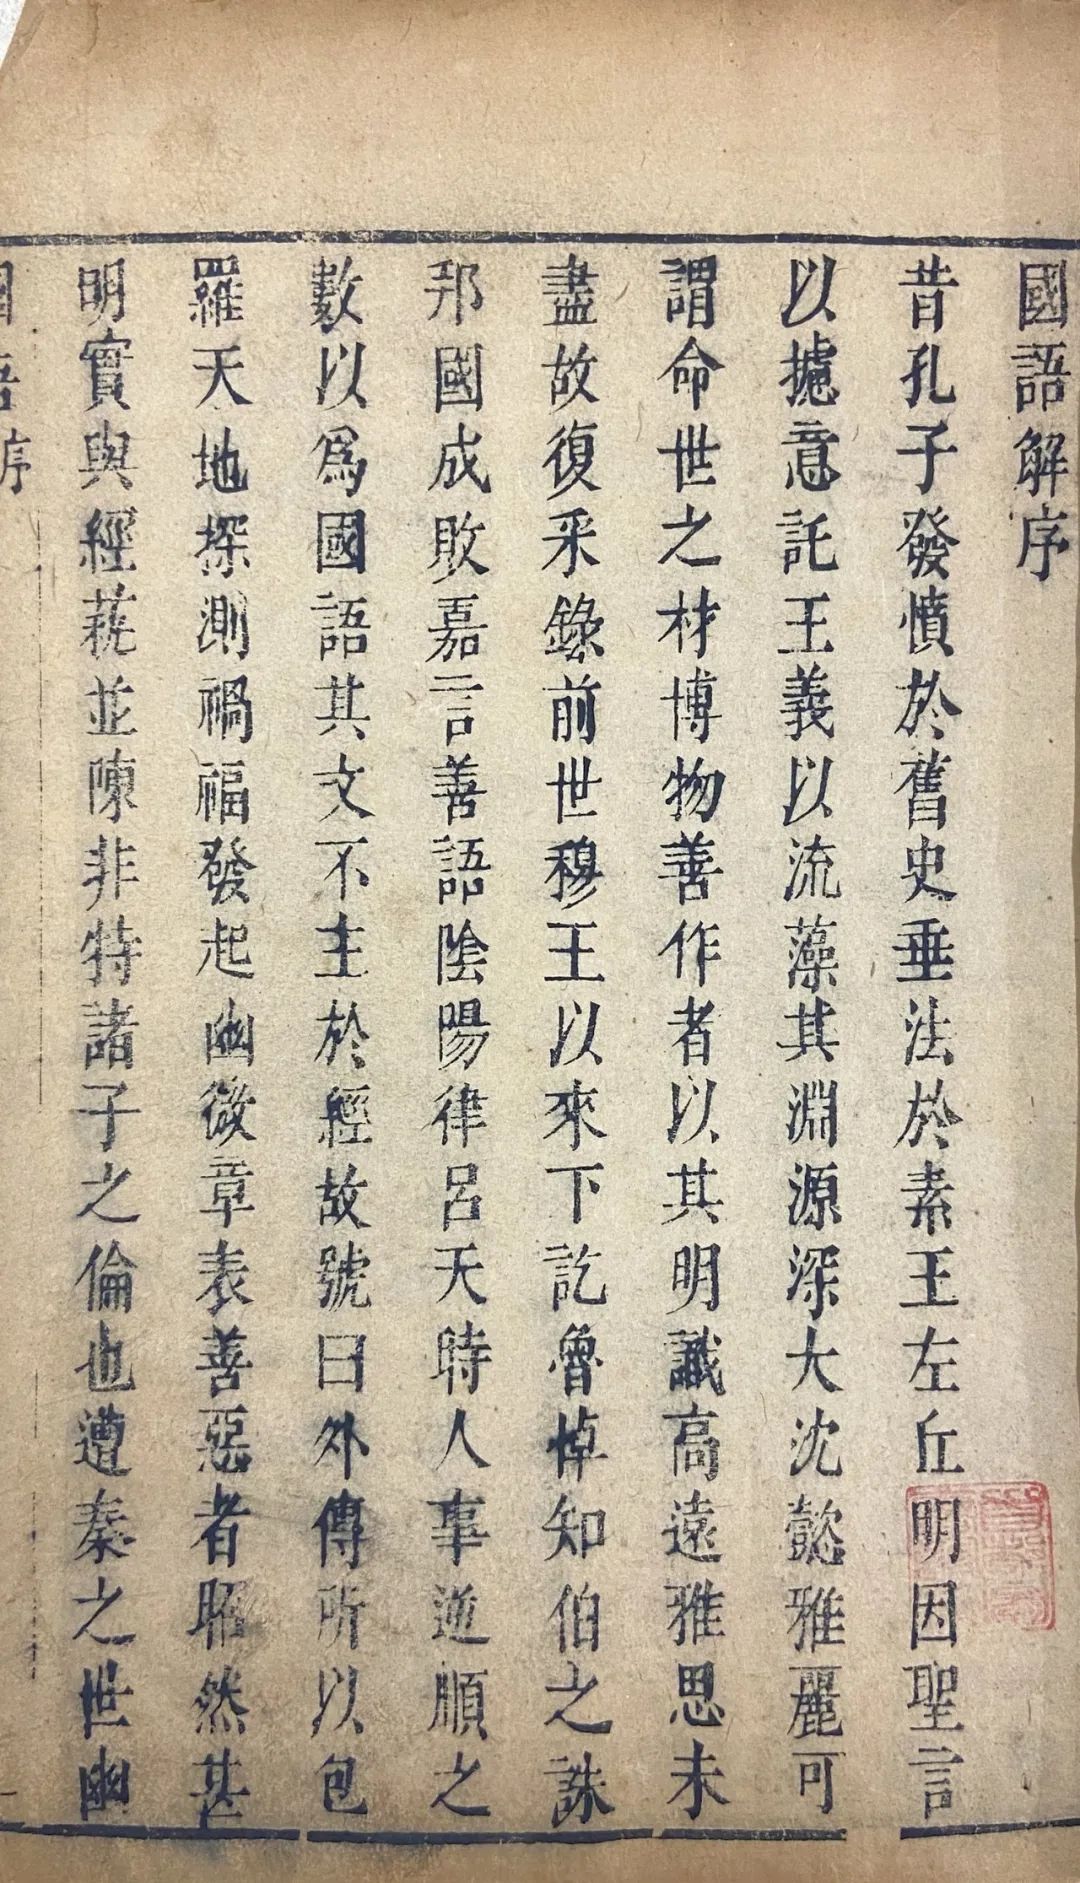 國語解序
昔孔子發憤於舊史垂法於素王左丘明因聖言
以攄意託王義以流藻其淵源深大沈懿雅麗可
謂命世之材博物善作者以其明識高遠雅思未
盡故復采錄前世穆王以來下訖魯悼知伯之誅
邦國成敗嘉言善語陰陽律呂天時人事逆順之
數以爲國語其文不主於經故號曰外傳所以包
羅天地探測禍福發起幽微章表善惡者昭然甚
明實與經蓺並陳非特諸子之倫也遭秦之世幽
國語序
一